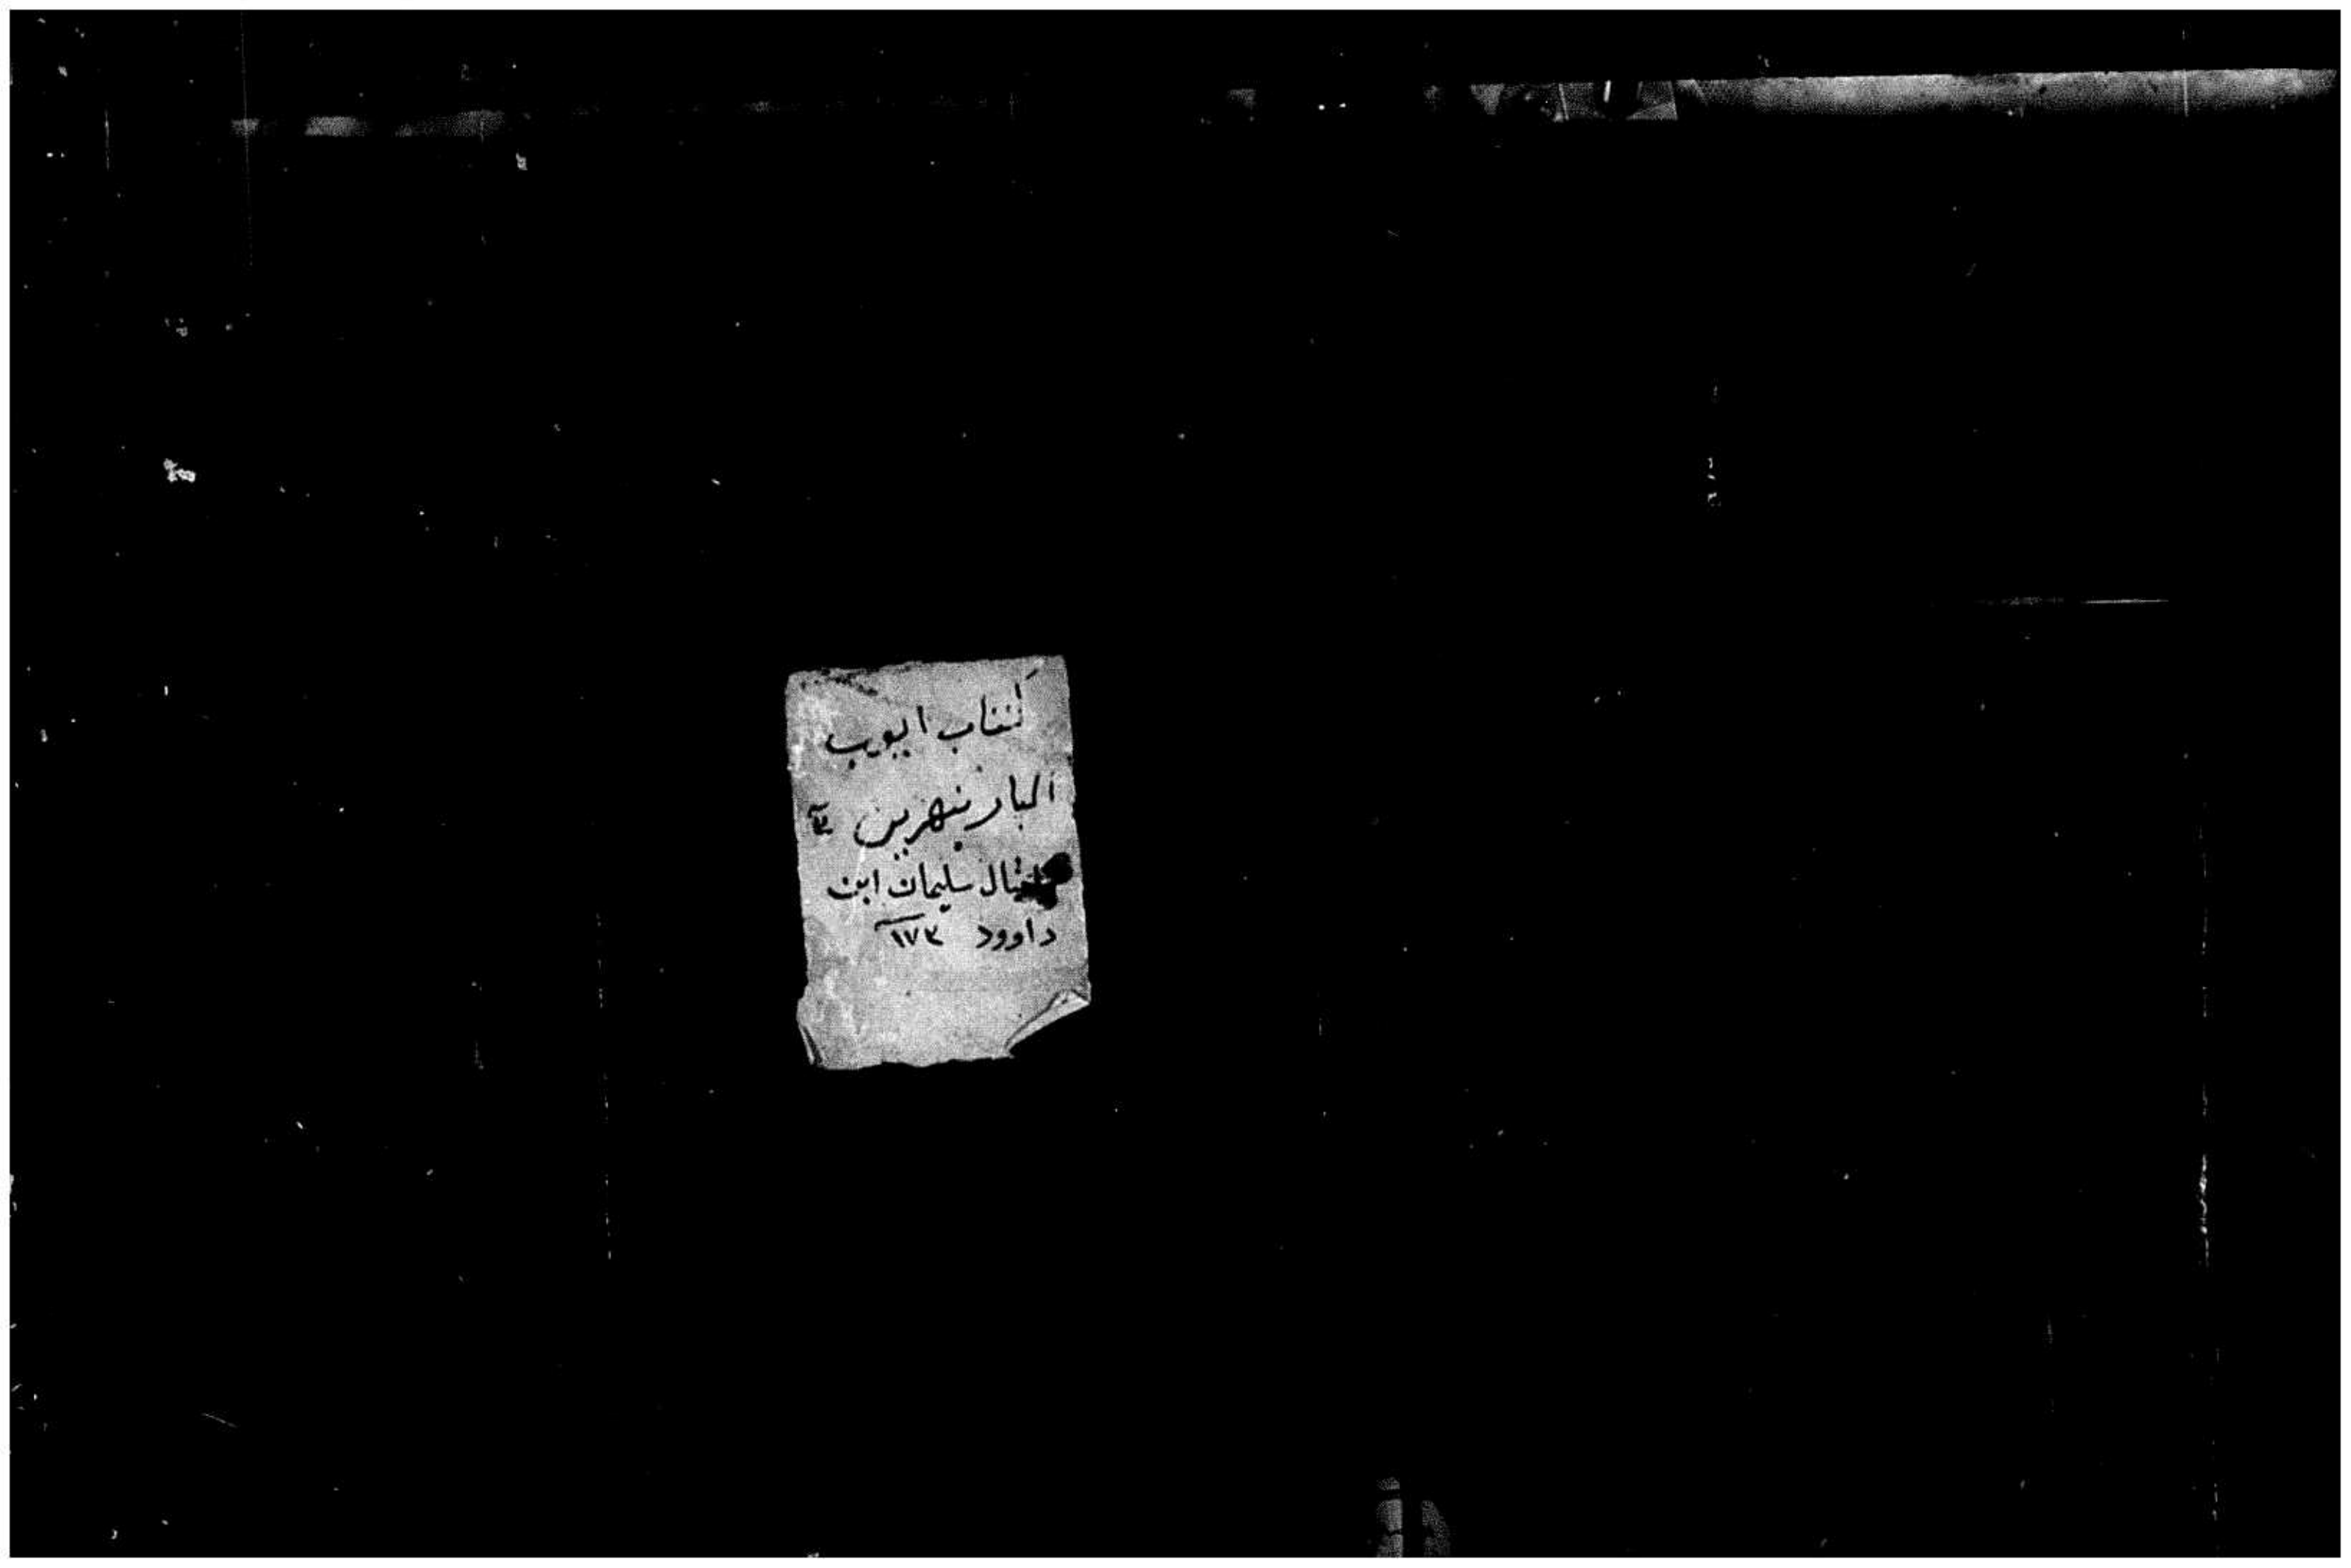 كتاب ايوب
البار بنهرين
امثال سليمان ابن
داوود ١٧٣